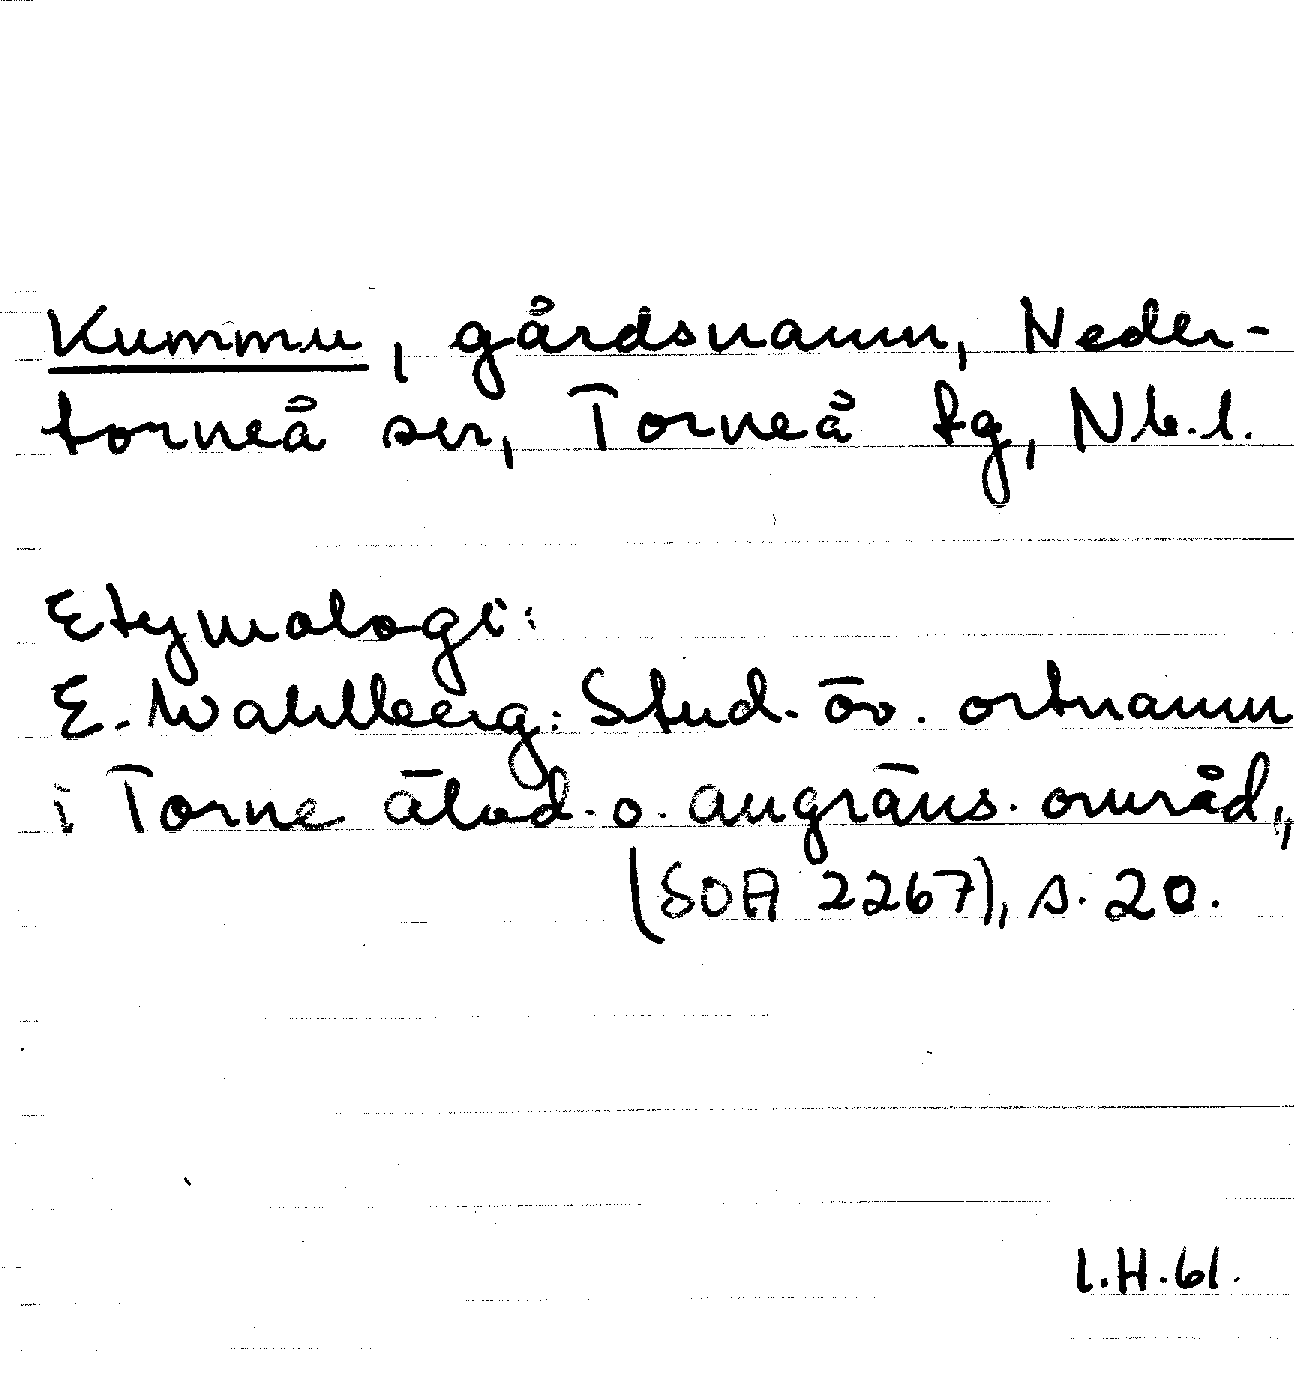 Kummu, gårdsnamn, Neder-
torneå sn, Torneå tg, Nb.l.
Etymologi:
E. Wahlberg: Stud. öv. ortnamn
i Torne älvd. o. angräns. områd.,
(SOA 2267), s. 20.
I.H.61.